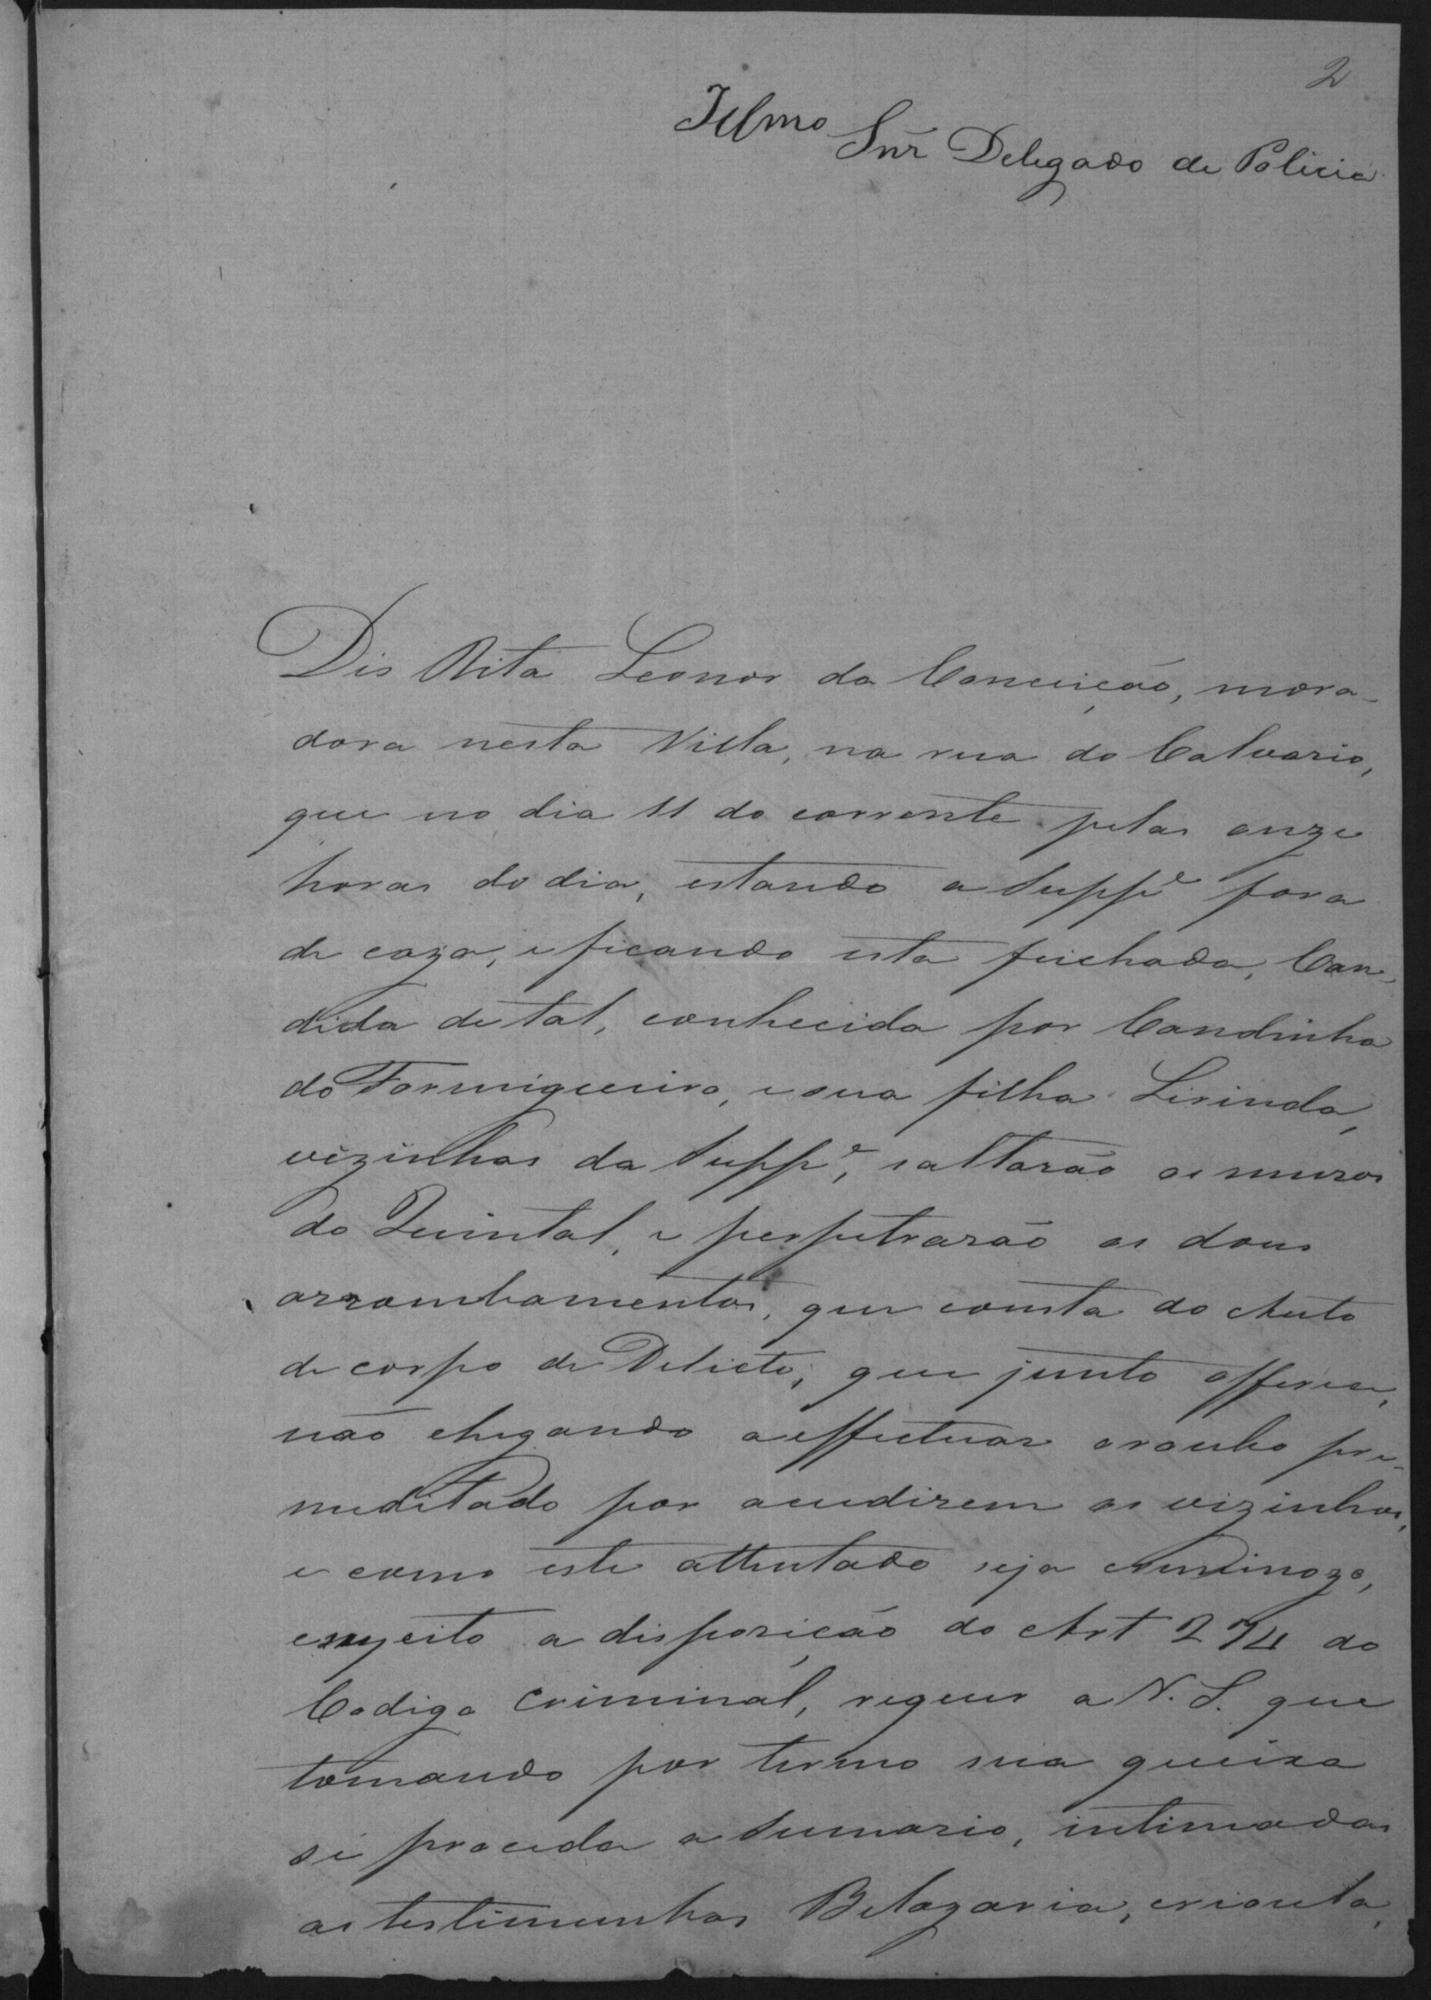 2
Illmo Snr Delegado de Policia
Dis Rita Leonor da Conceição, mora-
dora nesta Villa, na rua do Calvario,
que no dia 11 do corrente pelas onze
horas do dia, estando a Suppe fora
de caza, e ficando esta feichada, Can-
dida de tal, conhecida por Candinha
do Formigueiro, e sua filha Lirinda,
vizinhas da Suppe, saltarão os muros
do Quintal, e perpetrarão os dous
arrombamentos, que consta do Auto
de corpo de Delicto, que junto offerece,
não chegando a effectuar o roubo pre-
meditado por acudirem os vizinhos,
e como este attentado seja criminozo,
e sugeito a disposição do Art 274 do
Codigo Criminal, requer a V. S. que
tomando por termo sua queixa
si proceda a Sumario, intimadas
as testimunhas Belazaria, crioula,